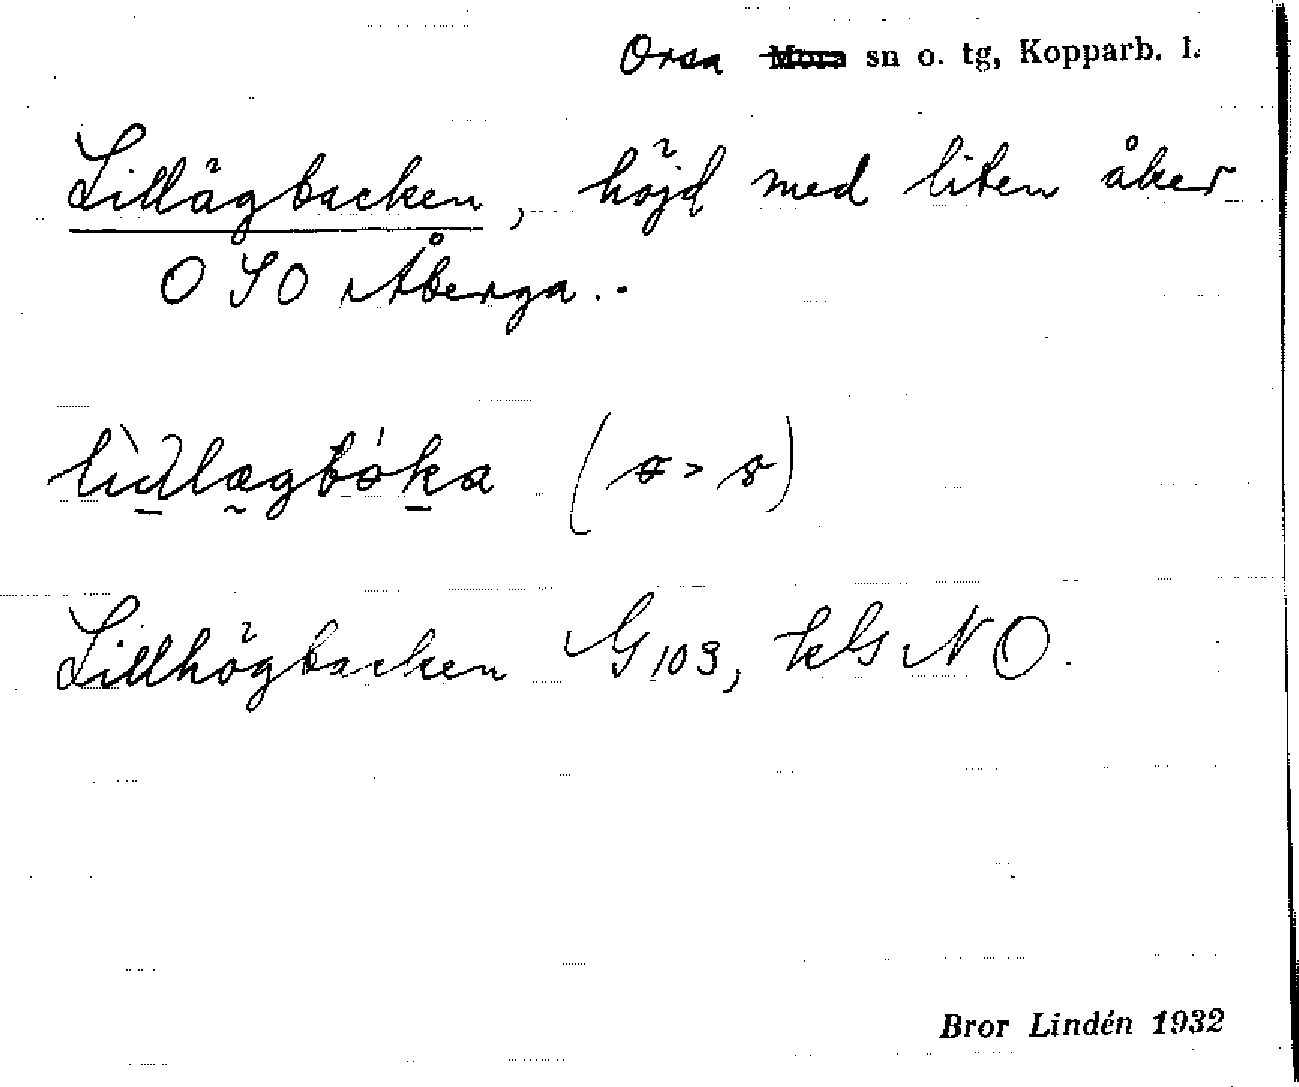 Orsa Mora sn o. tg, Kopparb. l.
Lillägbacken, höjd med liten åker
O S O Åberga.
Lillhögbacken G 103, NO.
Bror Lindén 1932